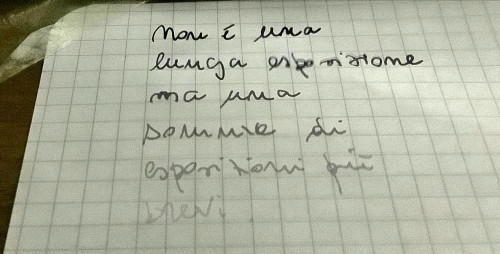 non è una
lunga esposizione
ma una
somma di
esposizioni più
brevi.